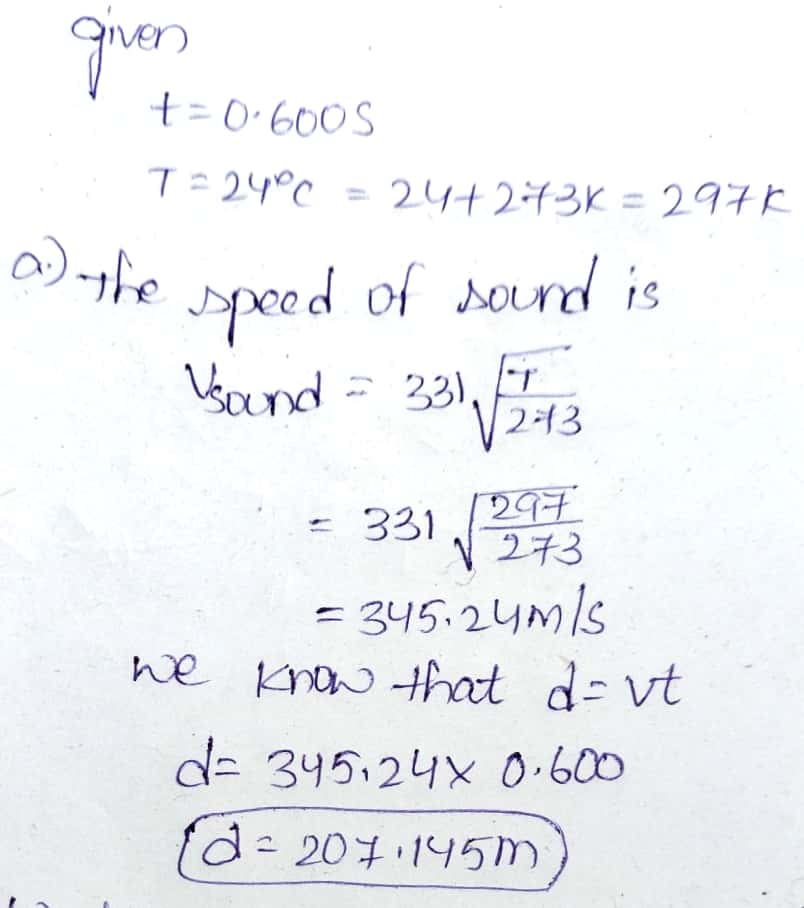 given
t=0.600S
T=24°C = 24+273K = 297K
a.) The speed of sound is
Vsound = 331 √T/273
= 331 √297/273
= 345.24m/s
we know that d=vt
d= 345.24x 0.600
d=207.145m